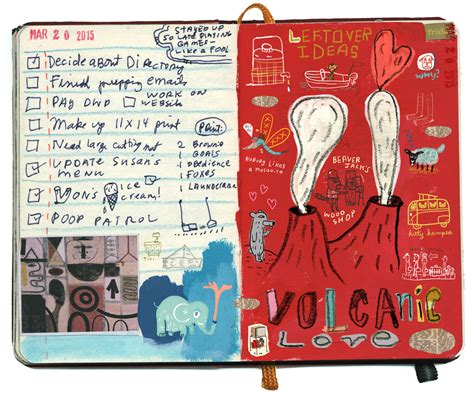 MAR 20 2015
STAYED UP
SO LATE PLAYING
GAMES—
LIKE A FOOL
DECIDE ABOUT DIRECTORY
FINISH prepping EMAILS
PAY DWP
WORK ON
WEBSITE
MAKE up 11X14 print
PRINT:
NEED large cutting mat
2 Brownie
GOALS
OBEDIENCE
FOXES
UPDATE SUSAN'S
MENU
VON'S ICE
CREAM!
POOP PATROL
LEFTOVER
IDEAS
WHY?
NOBODY LIKES
A MOSQUITO
BEAVER
JACK'S
WOOD
SHOP
kitty kamper
VOLCANIC
LOVE